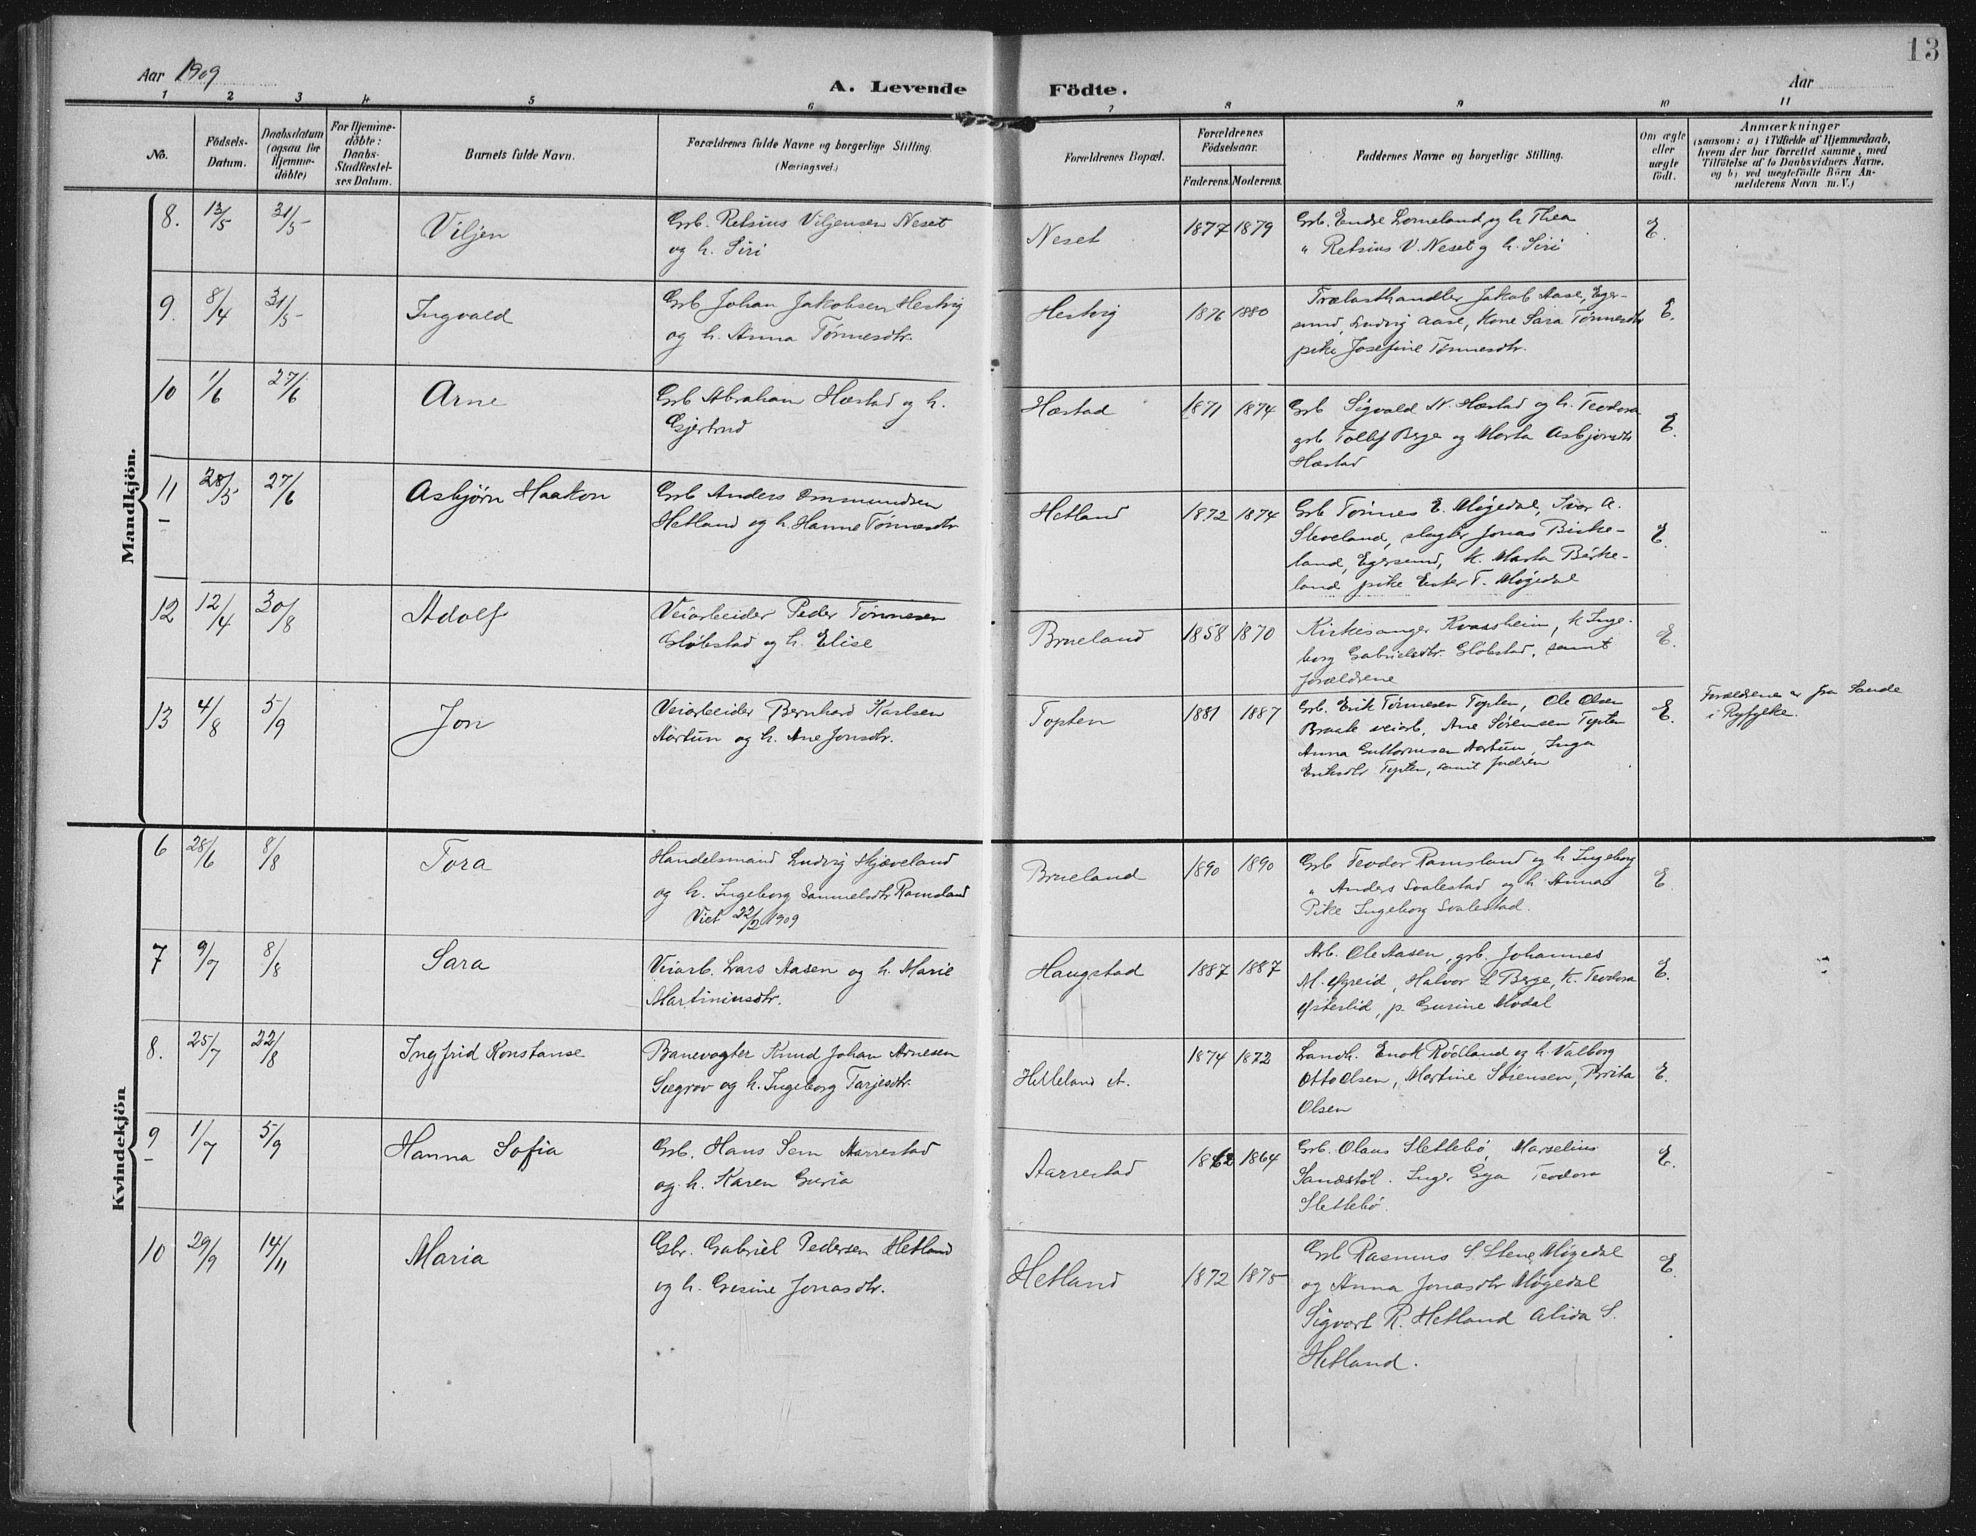 13
Aar 1909
A. Levende Födte.
Aar
1 2 3 4 5 6 7 8 9 10 11
No.
Födsels-
Datum.
Daabsdatum
(ogsaa for
Hjemme-
döbte)
For Hjemme-
döbte:
Daabs-
Stadfæstel-
ses Datum.
Barnets fulde Navn.
Forældrenes fulde Navne og borgerlige Stilling.
(Næringsvei.)
Forældrenes Bopæl.
Forældrenes
Födselsaar.
Faderens. Moderens.
Faddernes Navne og borgerlige Stilling.
Om ægte
eller
uægte
födt.
Anmærkninger
(saasom: a) i Tilfælde af Hjemmedaab,
hvem der har forrettet samme, med
Tilföielse af to Daabsvidners Navne,
og b) ved uægtefödte Börn An-
melderens Navn m. V.)
Mandkjön.
8. 13/5 31/5 Viljen
Grb. Retsius Viljensen Neset
og h. Siri
Neset 1877 1879
Grb. Endre Lomeland og h. Thea
" Retsius V. Neset og h. Siri
E.
9. 8/4 31/5 Ingvald
Grb Johan Jakobsen Hestvig
og h. Anna Tönnesdtr.
Hestvig 1876 1880
Trælasthandler Jakob Aase, Eger-
sund, Ludvig Aase, Kone Sara Tönnesdtr
pike Josefine Tönnesdtr.
E.
10 1/6 27/6 Arne
Grb Abraham Hæstad og h.
Gjertrud
Hæstad 1871 1874
Grb Sigvald N. Hæstad og h. Teodora
grb Tollef Berge og Marta Asbjörnsdtr
Hæstad
E.
11 28/5 27/6 Asbjørn Haakon
Grb Anders Ommundsen
Hetland og h. Hanne Tönnesdtr
Hetland 1872 1874
Grb Tönnes E. Møgedal, Ivar A.
Sleveland, slagter Jonas Birke-
land, Egersund, K. Marta Birke-
land pike Ester T. Møgedal
E.
12 12/4 30/8 Adolf
Veiarbeider Peder Tönnesen
Gløbstad og h. Elise
Brueland 1858 1870
Kirkesanger Kvassheim, K Inge-
borg Gabrielsdtr. Gløbstad, samt
forældrene
E.
13 4/8 5/9 Jon
Veiarbeider Bernhard Karlsen
Aartun og h. Ane Jonsdtr.
Topten 1881 1887
Grb. Erik Tönnesen Topten, Ole Olsen
Braate veiarb, Ane Sörensen Topten
Anna Guttormsen Aartun, Inga
Eriksdtr Topten, samt faderen
E.
Forældrene er fra Sande
i Ryfylke.
Kvindekjön
6 28/6 8/8 Tora
Handelsmand Ludvig Skjæveland
og h. Ingeborg Samuelsdtr Ramsland
Viet 22/2 1909
Brueland 1890 1890
Grb Teodor Ramsland og h Ingeborg
" Anders Svalestad og h Anna
Pike Ingeborg Svalestad.
E.
7 9/7 8/8 Sara
Veiarb. Lars Aasen og h. Marie
Martiniusdtr.
Haugstad 1887 1887
Arb. Ole Aasen, grb. Johannes
M. Øgreid, Halvor L Berge, K. Teodora
Østerlid, p. Gurine Modal
E.
8. 25/7 22/8 Ingfrid Konstanse
Banevogter Knud Johan Arnesen
Sægrov og h. Ingeborg Tarjesdtr.
Helleland st. 1874 1872
Landh. Enok Rödland og h. Valborg
Otto Olsen, Martine Sörensen, Brita
Olsen
E.
9 1/7 5/9 Hanna Sofia
Grb. Hans Sem Aarrestad
og h. Karen Guria
Aarrestad 1862 1864
Grb. Olaus Slettebö, Marselius
Sandstöl. Inger Gya Teodora
Slettebö.
E.
10 29/9 14/11 Maria
Gbr. Gabriel Pedersen Hetland
og h. Gesine Jonasdtr.
Hetland 1872 1875
Grb Rasmus S. Stene, Møgedal
og Anna Jonasdtr Møgedal
Sigvart R. Hetland Alida S.
Hetland.
E.